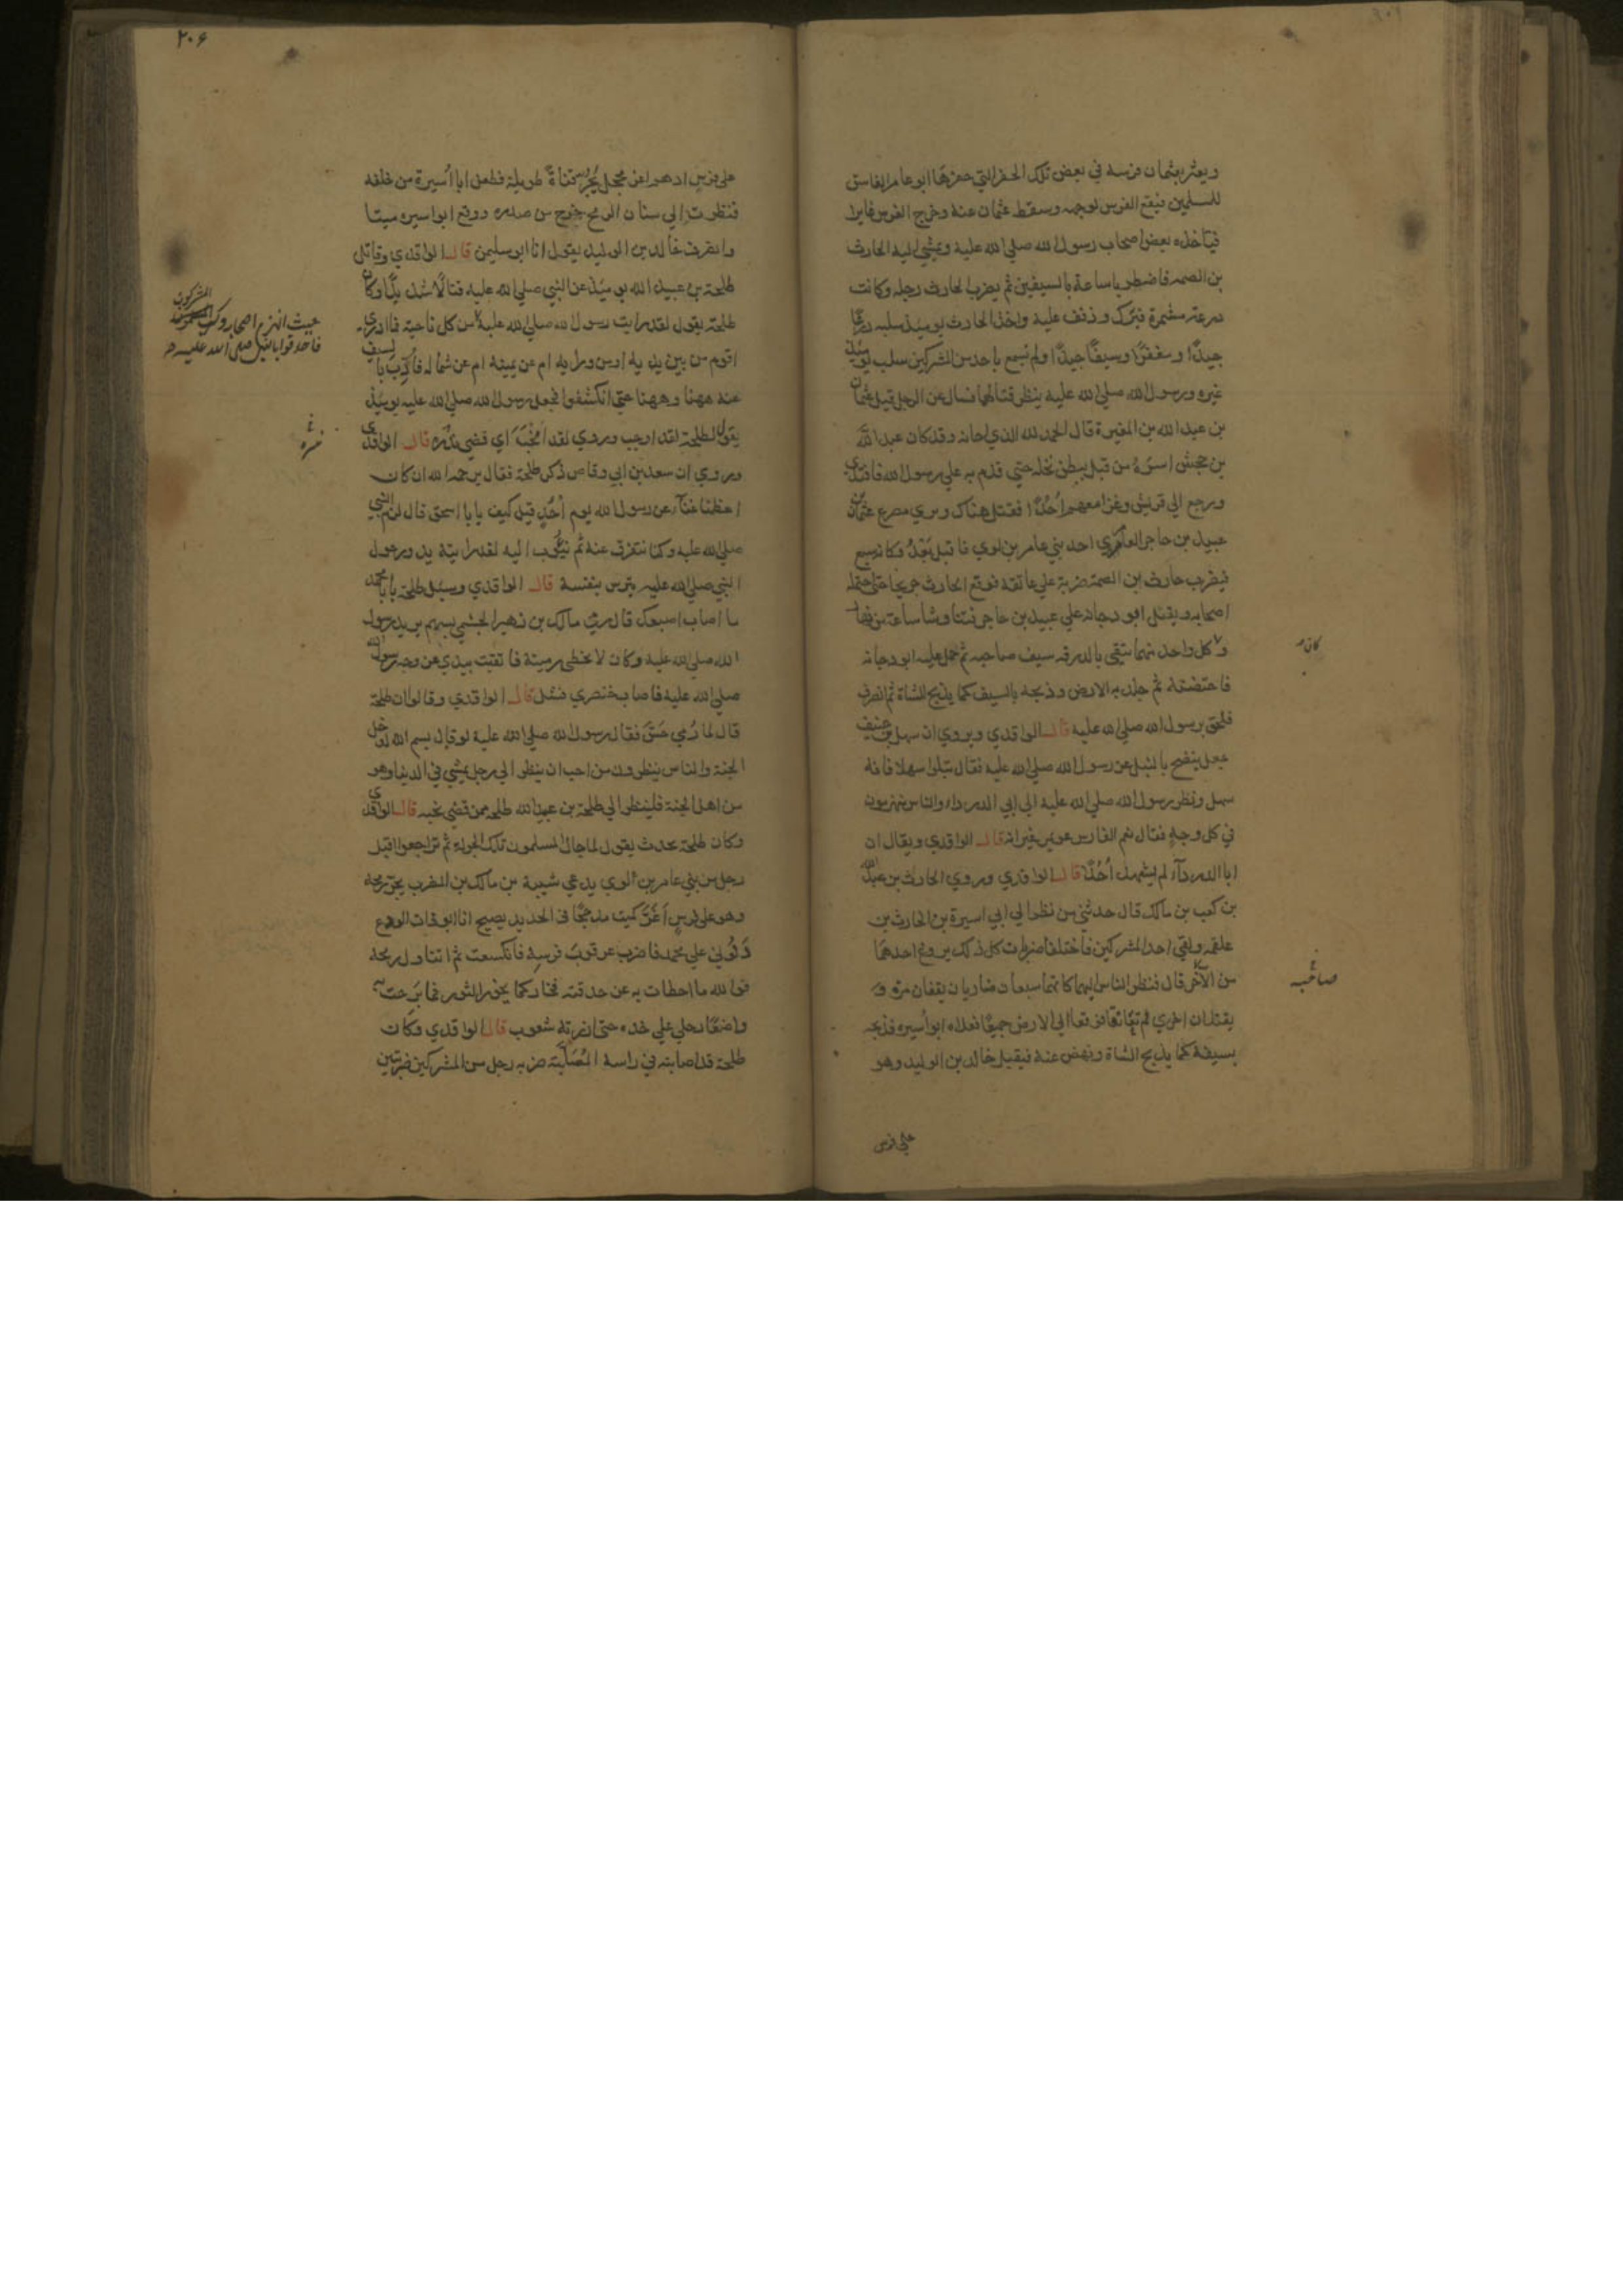 ويعثر بعثمان فرسه في بعض تلك الحفر التي حفرها ابو عامر الفاسق
للمسلمين فيقع الفرس لوجهه وسقط عثمان عنه وخرج الفرس غايرا
فياخذه بعض اصحاب رسول الله صلي الله عليه ويمشي اليه الحارث
بن الصمه فاضطربا ساعة بالسيفين ثم يضرب الحارث رجله وكانت
درعه مشمرة فبرك وذفف عليه واخذ الحارث يومئذ سلبه درعًا
جيدًا ومغفرًا وسيفًا جيدًا ولم نسمع باحد من المشركين سلب يومئذ
غيره ورسول الله صلي الله عليه ينظر قتالهما فسال عن الرجل قيل عثمان
بن عبد الله بن المغيرة قال الحمد لله الذي احانه وقد كان عبد الله
بن جحش اسره من قبل ببطن نخله حتي قدم به علي رسول الله فافتدي
ورجع الي قريش وغزا معهم احُدًا فقتل هناك ويري مصرع عثمان
عبيد بن حاجر العامري احد بني عامر بن لوي فاقبل يعدُو كانه سبع
فيضرب حارث بن الصمه ضربة علي عاتقه فوقع الحارث جريحا حتي احتمله
اصحابه ويقبل ابو دجانه علي عبيد بن حاجر فتناوشا ساعة من نهار
وكل واحد منهما يتقي بالدرقه سيف صاحبه ثم حمل عليه ابو دجانه
كان
فاحتضنه ثم جلد به الارض وذبحه بالسيف كما يذبح الشاة ثم انصرف
فلحق برسول الله صلي الله عليه قال الواقدي ويروي ان سهل بن حنيف
جعل ينضح بالنبل عن رسول الله صلي الله عليه فقال نبلوا سهلا فانه
سهل ونظر رسول الله صلي الله عليه الي ابي الدرداء والناس منهزمون
في كل وجه فقال نعم الفارس عويمر غير انه قال الواقدي ويقال ان
ابا الدرداء لم يشهد اُحُدًا قال الواقدي وروي الحارث بن عبد الله
بن كعب بن مالك قال حدثني من نظر الي ابي اسيرة بن الحارث بن
علقمه ولقي احد المشركين فاختلفا ضربات كل ذلك يروغ احدهما
من الآخر قال فنظر الناس اليهما كانهما سبعان ضاريان يقفان مرة و
صاحبه
يقتتلان اخري ثم تعانقا فوقعا الي الارض جميعًا فعلاه ابو أسيره فذبحه
بسيفه كما يذبح الشاة ونهض عنه فيقبل خالد بن الوليد وهو
علي فرس
٢٠۶
علي فرس ادهم اغر محجل يجُر قناةً طويلة فطعن ابا أسيرة من خلفه
فنظرت الي سنان الرمح خرج من صدره ووقع ابو اسيره ميتا
وانصرف خالد بن الوليد يقول انا ابو سليمن قال الواقدي وقاتل
طلحة بن عبيد الله يومئذ عن النبي صلي الله عليه قتالًا شديدًا وكان
طلحة يقول لقد رايت رسول الله صلي الله عليه من كل ناحية فما ادري
حيث انهزم اصحابه وكر المشركون
فاحدقوا بالنبي صلى الله عليه
اقوم من بين يديه او من ورايه ام عن يمينه ام عن شماله فأذب بالسيف
عنه ههنا وههنا حتي انكشفوا فجعل رسول الله صلي الله عليه يومئذ
يقول لطلحة لقد اوجب وروي لقد انحب اي قضي نذره قال الواقدي
وروي ان سعد بن ابي وقاص ذكر طلحة فقال يرحمه الله ان كان
اعظمنا غناءً عن رسول الله يوم اُحُدٍ قيل كيف يا با اسحق قال لزم النبي
صلي الله عليه وكنا نتفرق عنه ثم نثوب اليه لقد رايته يدور حول
النبي صلي الله عليه يترس بنفسه قال الواقدي وسئل طلحة يا با محمد
ما اصاب اصبعك قال رمي مالك بن زهير الجشمي بسهم يريد رسول
الله صلي الله عليه وكان لا يخطي رميته فاتقيت بيدي عن وجه رسول الله
صلي الله عليه فاصاب خنصري فشل قال الواقدي وقالوا ان طلحة
قال لما رُمي حَسّ فقال رسول الله صلي الله عليه لو قال بسم الله لدخل
الجنة والناس ينظرون من احب ان ينظر الي رجل يمشي في الدنيا وهو
من اهل الجنة فلينظر الي طلحة بن عبيد الله طلحه ممن قضي نحبه قال الواقدي
وكان طلحة يحدث يقول لما جال المسلمون تلك الجوله ثم تراجعوا اقبل
رجل من بني عامر بن لُوي يدعي شيبة بن مالك بن المضرب يجر رمحه
وهو علي فرس أغَرَّ كميت مدججًا في الحديد يصيح انا ابو ذات الودع
دُلُّوني علي محمد فاضرب عرقوب فرسه فانكسعت ثم اتناول رمحه
فوالله ما اخطات به عن حدقته فخار كما يخور الثور فما برحت
واضعًا رجلي علي خده حتي ازرته شعوب قال الواقدي وكان
طلحة قد اصابته في راسه المُصَلَّبة ضربه رجل من المشركين ضربتين